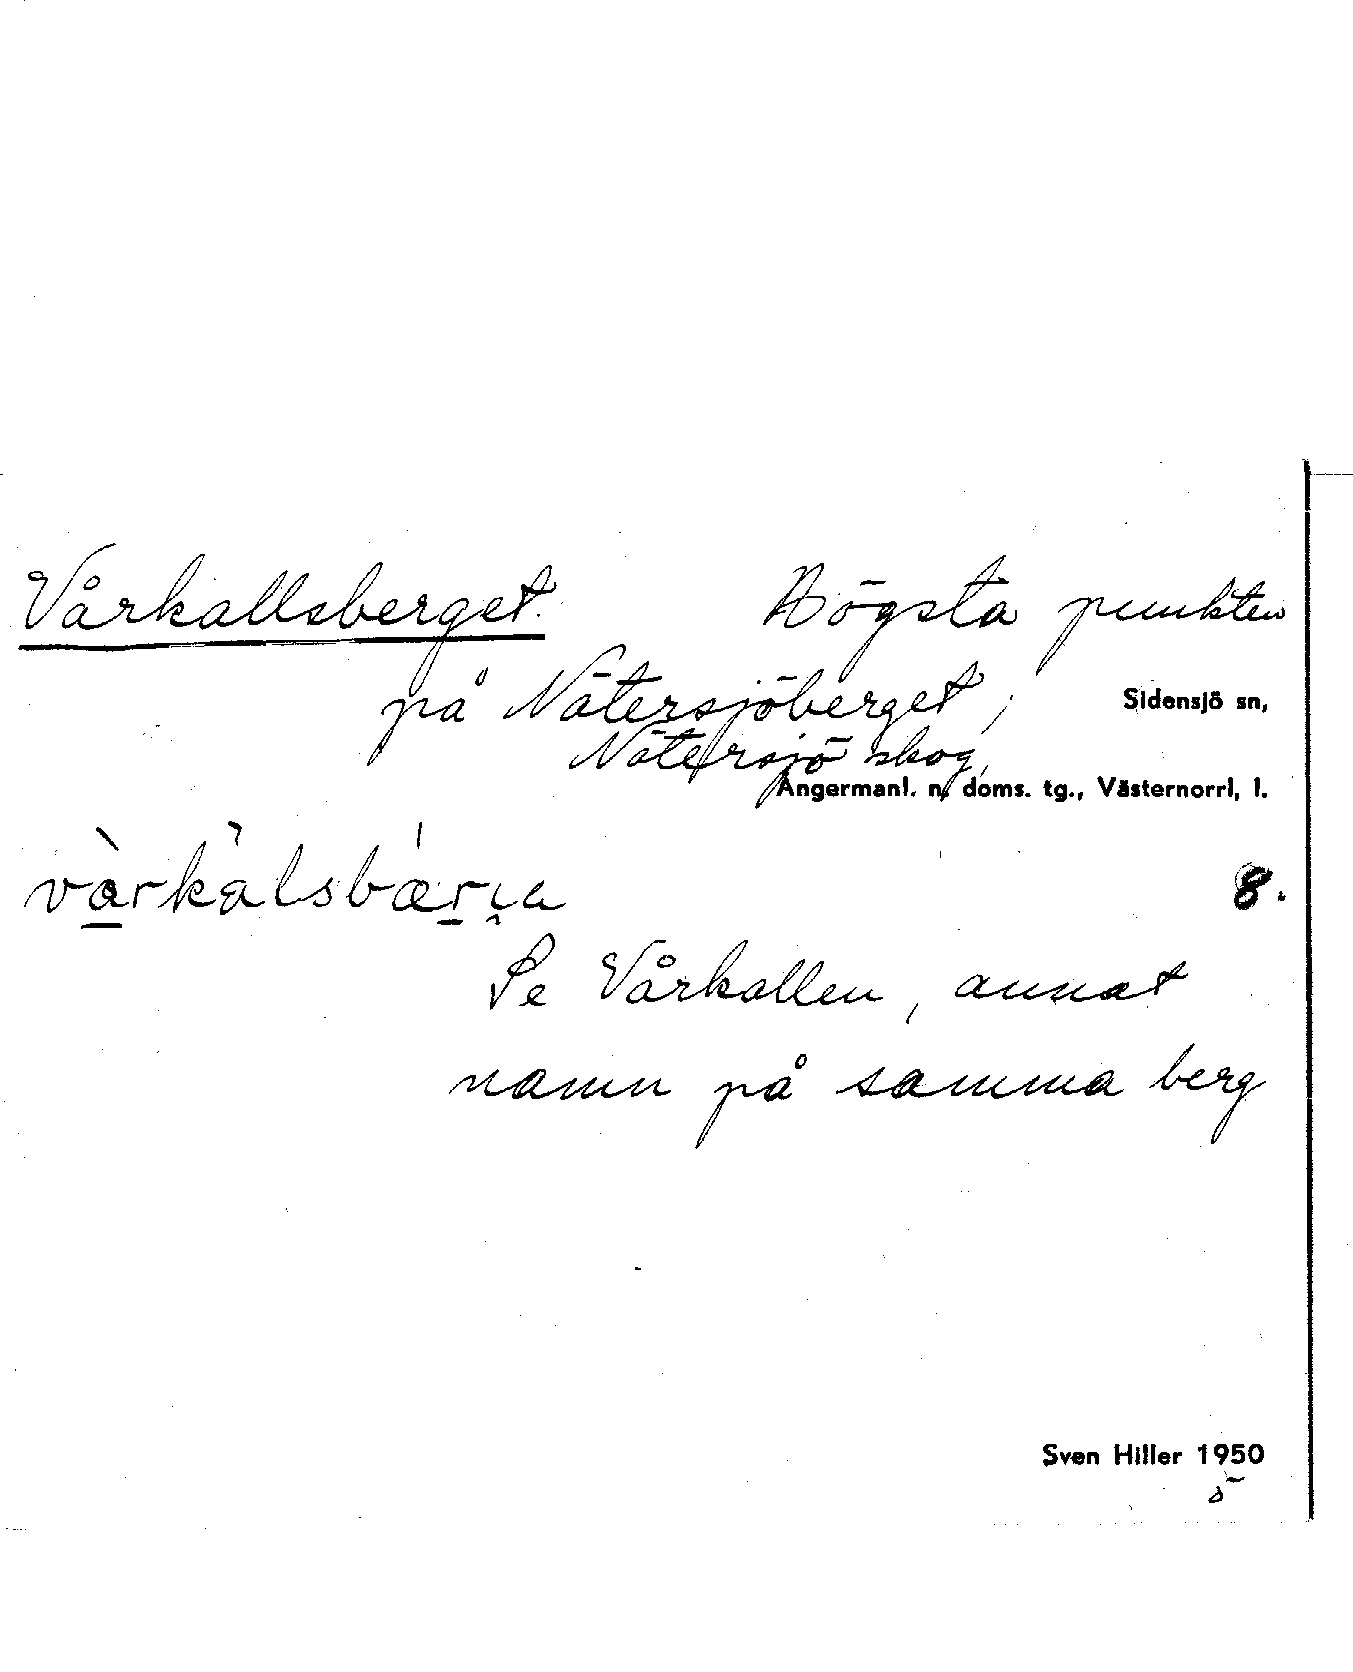 Vårkallsberget. Högsta punkten
på Nätersjöberget, Sidensjö sn,
Nätersjö skog,
Ångermanl. n. doms. tg., Västernorrl. l.
8.
Se Vårkallen, annat
namn på samma berg
Sven Hiller 1950